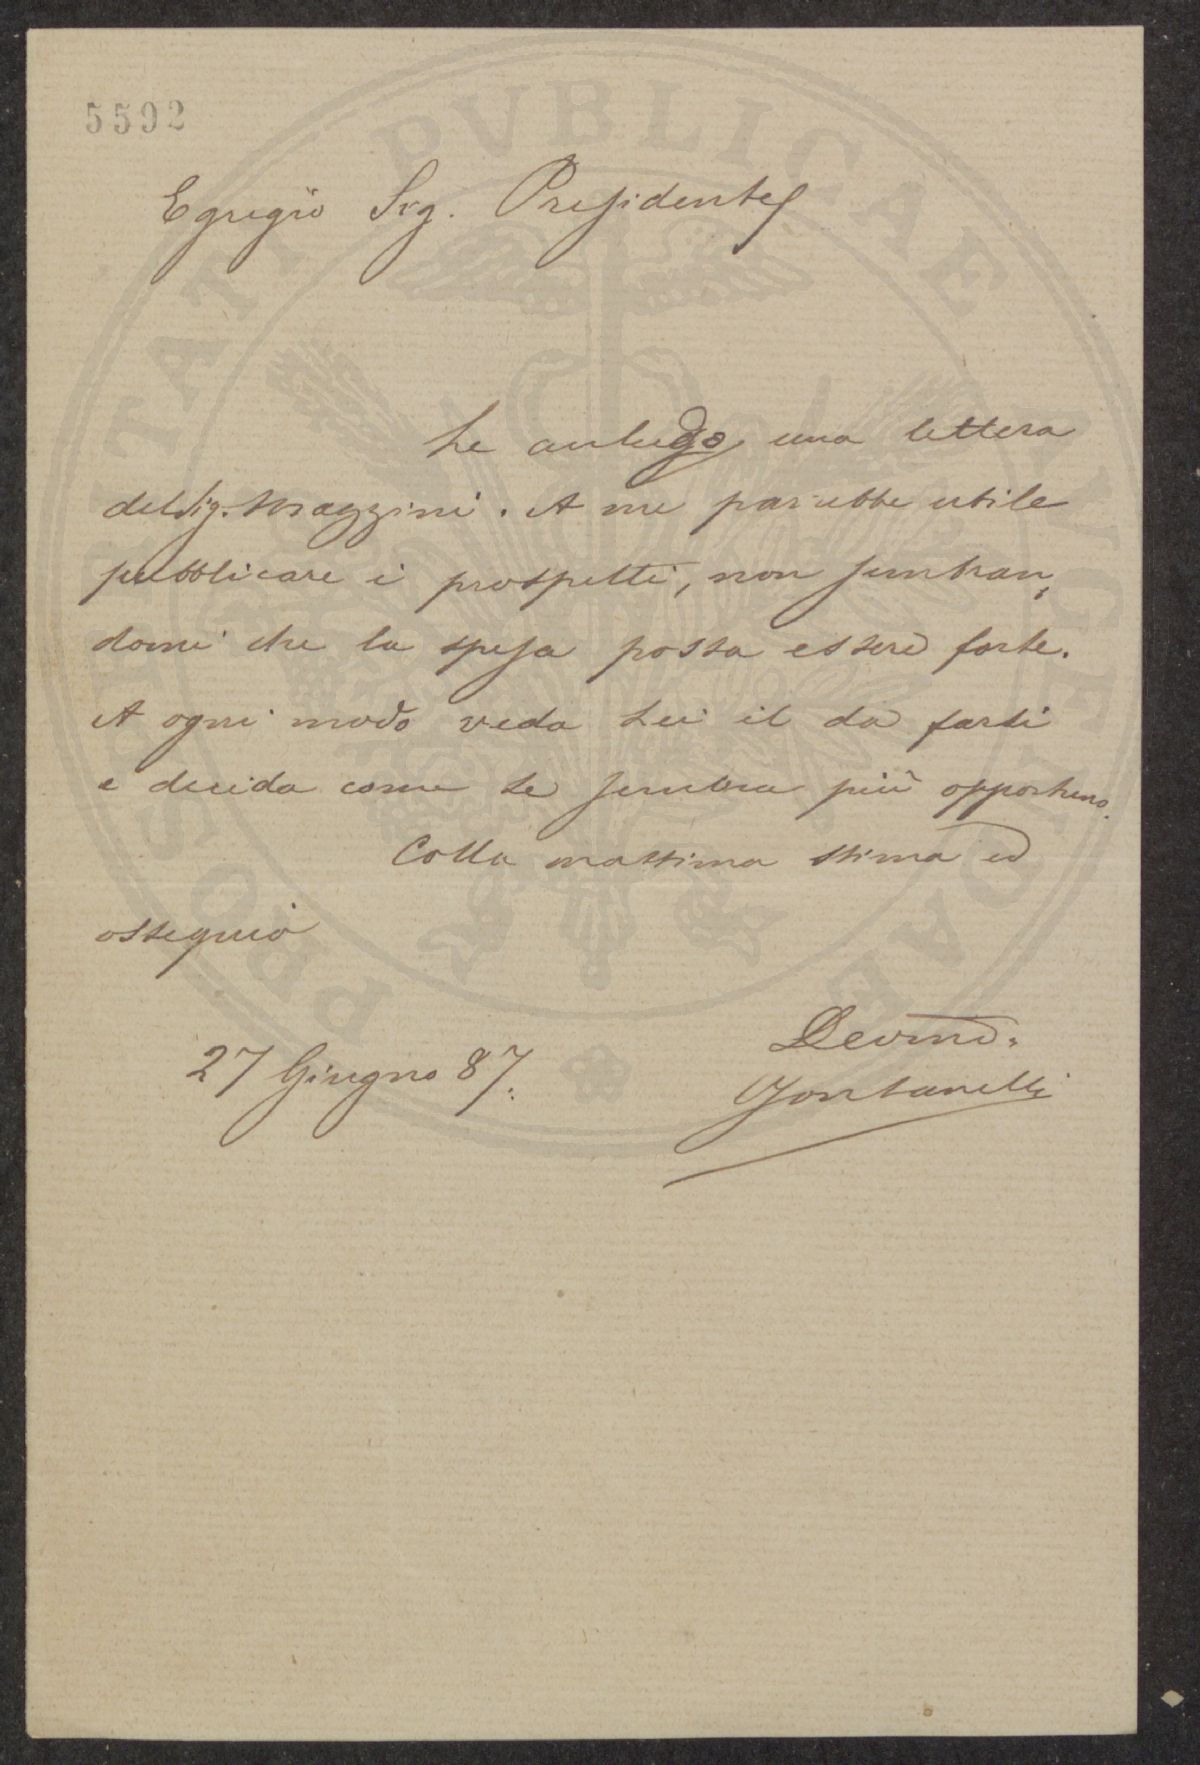 5592
PROSPERITATI PVBLICAE AVGENDAE
Egregio Sig. Presidente
Le accludo una lettera
del Sig. Mazzini. A me parrebbe utile
pubblicare i prospetti, non sembran
domi che la spesa possa essere forte.
A ogni modo veda Lei il da farsi
e decida come Le sembra più opportuno.
Colla massima stima ed
ossequio
27 Giugno 87.
Devmo.
Fontanelli